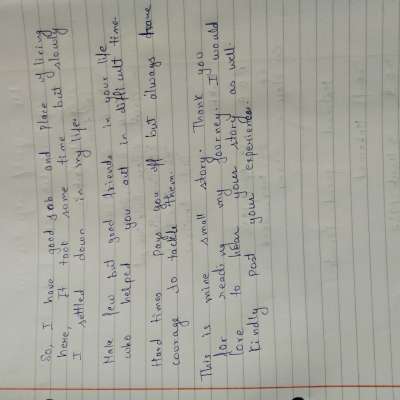 So, I have good job and place of living
here, It took some time but slowly
I settled down in my life.
Make few but good friends in your life
who helped you out in difficult time.
Hard times pays you off but always have
courage to tackle them.
This is mine small story. Thank you
for reading my journey. I would
love to hear your story as well.
Kindly post your experience.